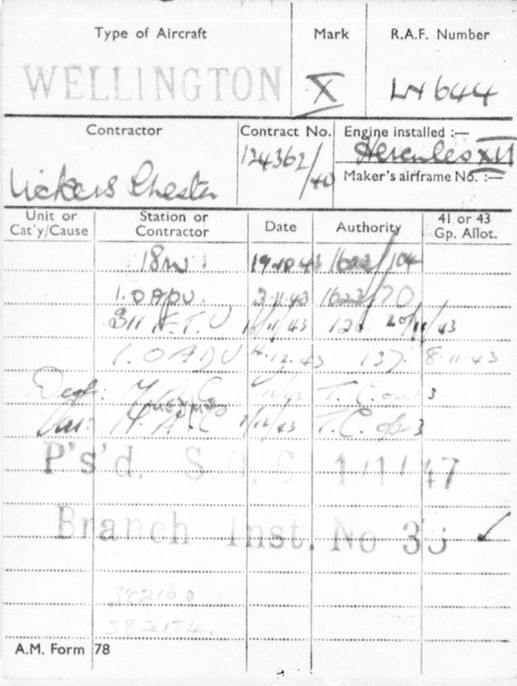 Type of Aircraft Mark R.A.F. Number
WELLINGTON X LN 644
Contractor Contract No. Engine installed :—
Vickers Chester 124362/40 Hercules XVI
Maker's airframe No. :—
Unit or Cat'y/Cause Station or Contractor Date Authority 41 or 43 Gp. Allot.
18 19.10.43 1623/104
1.OADU. 2.11.43 1623/70
311 F.T.U 43 12 20/11/43
1.OADU 4.12.43 137 8.11.43
T.C. 3
M.A.C 43 T.C. 3
P's'd. S.O.C 1/1/47
Branch Inst. No 33 ✓
382160
382154
A.M. Form 78